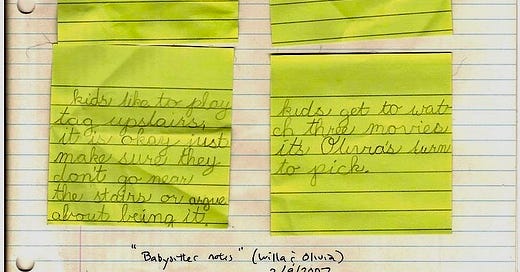 kids like to play
tag upstairs,
it is okay just
make sure they
don't go near
the stairs or argue
about being it.
kids get to wat-
ch three movies
its Olivia's turn
to pick.
"Babysitter notes" (Willa & Olivia)
2/9/2007